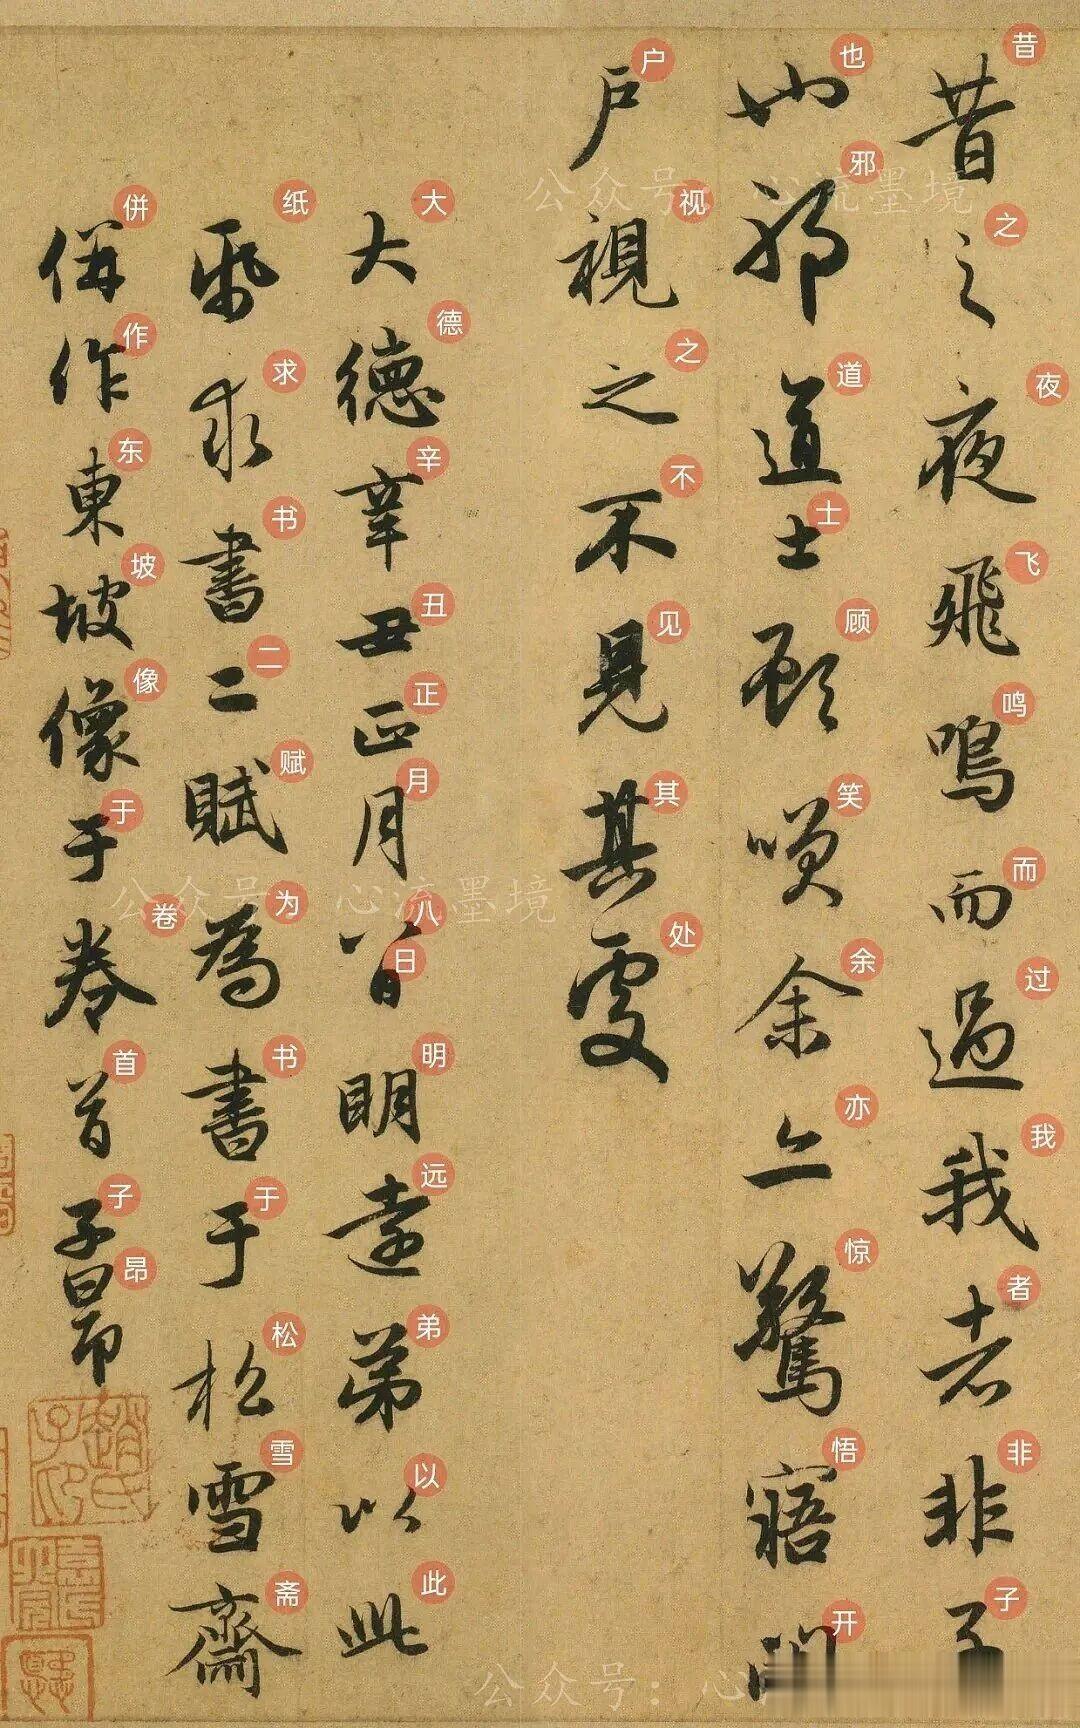 昔之夜飛鳴而過我者非子
昔之夜飞鸣而过我者非子
也邪道士顧笑余亦驚寤開
也邪道士顾笑余亦惊悟开
戶視之不見其處
户视之不见其处
大德辛丑正月八日明遠弟以此
大德辛丑正月八日明远弟以此
紙求書二賦為書于松雪齋
纸求书二赋为书于松雪斋
併作東坡像于卷首子昂
併作东坡像于卷首子昂
趙氏子昂
公众号：心流墨境
公众号：心流墨境
公众号：心